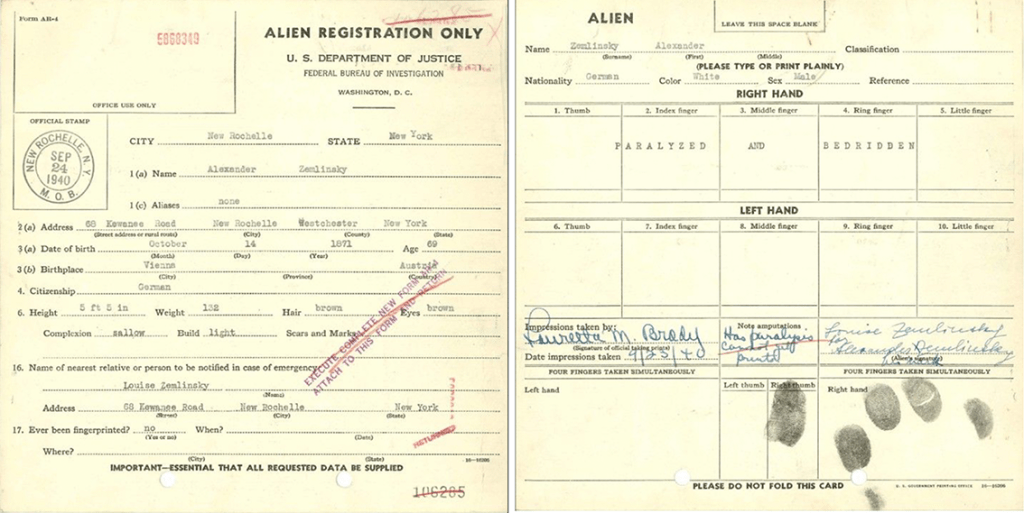 Form AR-4
5858349
OFFICE USE ONLY
ALIEN REGISTRATION ONLY
U. S. DEPARTMENT OF JUSTICE
FEDERAL BUREAU OF INVESTIGATION
WASHINGTON, D. C.
OFFICIAL STAMP
NEW ROCHELLE, N.Y.
SEP
24
1940
M. O. B.
CITY New Rochelle STATE New York
1 (a) Name Alexander Zemlinsky
1 (c) Aliases none
2 (a) Address 68 Kewanee Road New Rochelle Westchester New York
(Street address or rural route) (City) (County) (State)
3 (a) Date of birth October 14 1871 Age 69
(Month) (Day) (Year)
3 (b) Birthplace Vienna Austria
(City) (Province) (Country)
4. Citizenship German
6. Height 5 ft 5 in Weight 132 Hair brown Eyes brown
Complexion sallow Build light Scars and Marks
EXECUTE COMPLETE NEW FORM AR-4
ATTACH TO THIS FORM AND RETURN
16. Name of nearest relative or person to be notified in case of emergency
Louise Zemlinsky
(Name)
Address 68 Kewanee Road New Rochelle New York
(Street) (City) (State)
17. Ever been fingerprinted? no When?
(Yes or no) (Date)
RETURNED
Where?
(City) (State)
IMPORTANT—ESSENTIAL THAT ALL REQUESTED DATA BE SUPPLIED
106285
ALIEN
LEAVE THIS SPACE BLANK
Name Zemlinsky Alexander Classification
(Surname) (First) (Middle)
(PLEASE TYPE OR PRINT PLAINLY)
Nationality German Color White Sex Male Reference
RIGHT HAND
1. Thumb 2. Index finger 3. Middle finger 4. Ring finger 5. Little finger
PARALYZED AND BEDRIDDEN
LEFT HAND
6. Thumb 7. Index finger 8. Middle finger 9. Ring finger 10. Little finger
Impressions taken by: Note amputations
Lauretta M. Brody Has paralysis Louise Zemlinsky
(Signature of official taking prints) cannot get for Alexander Zemlinsky
Date impressions taken 9/23/40 prints (Alien's signature)
FOUR FINGERS TAKEN SIMULTANEOUSLY FOUR FINGERS TAKEN SIMULTANEOUSLY
Left hand Left thumb Right thumb Right hand
PLEASE DO NOT FOLD THIS CARD
U. S. GOVERNMENT PRINTING OFFICE